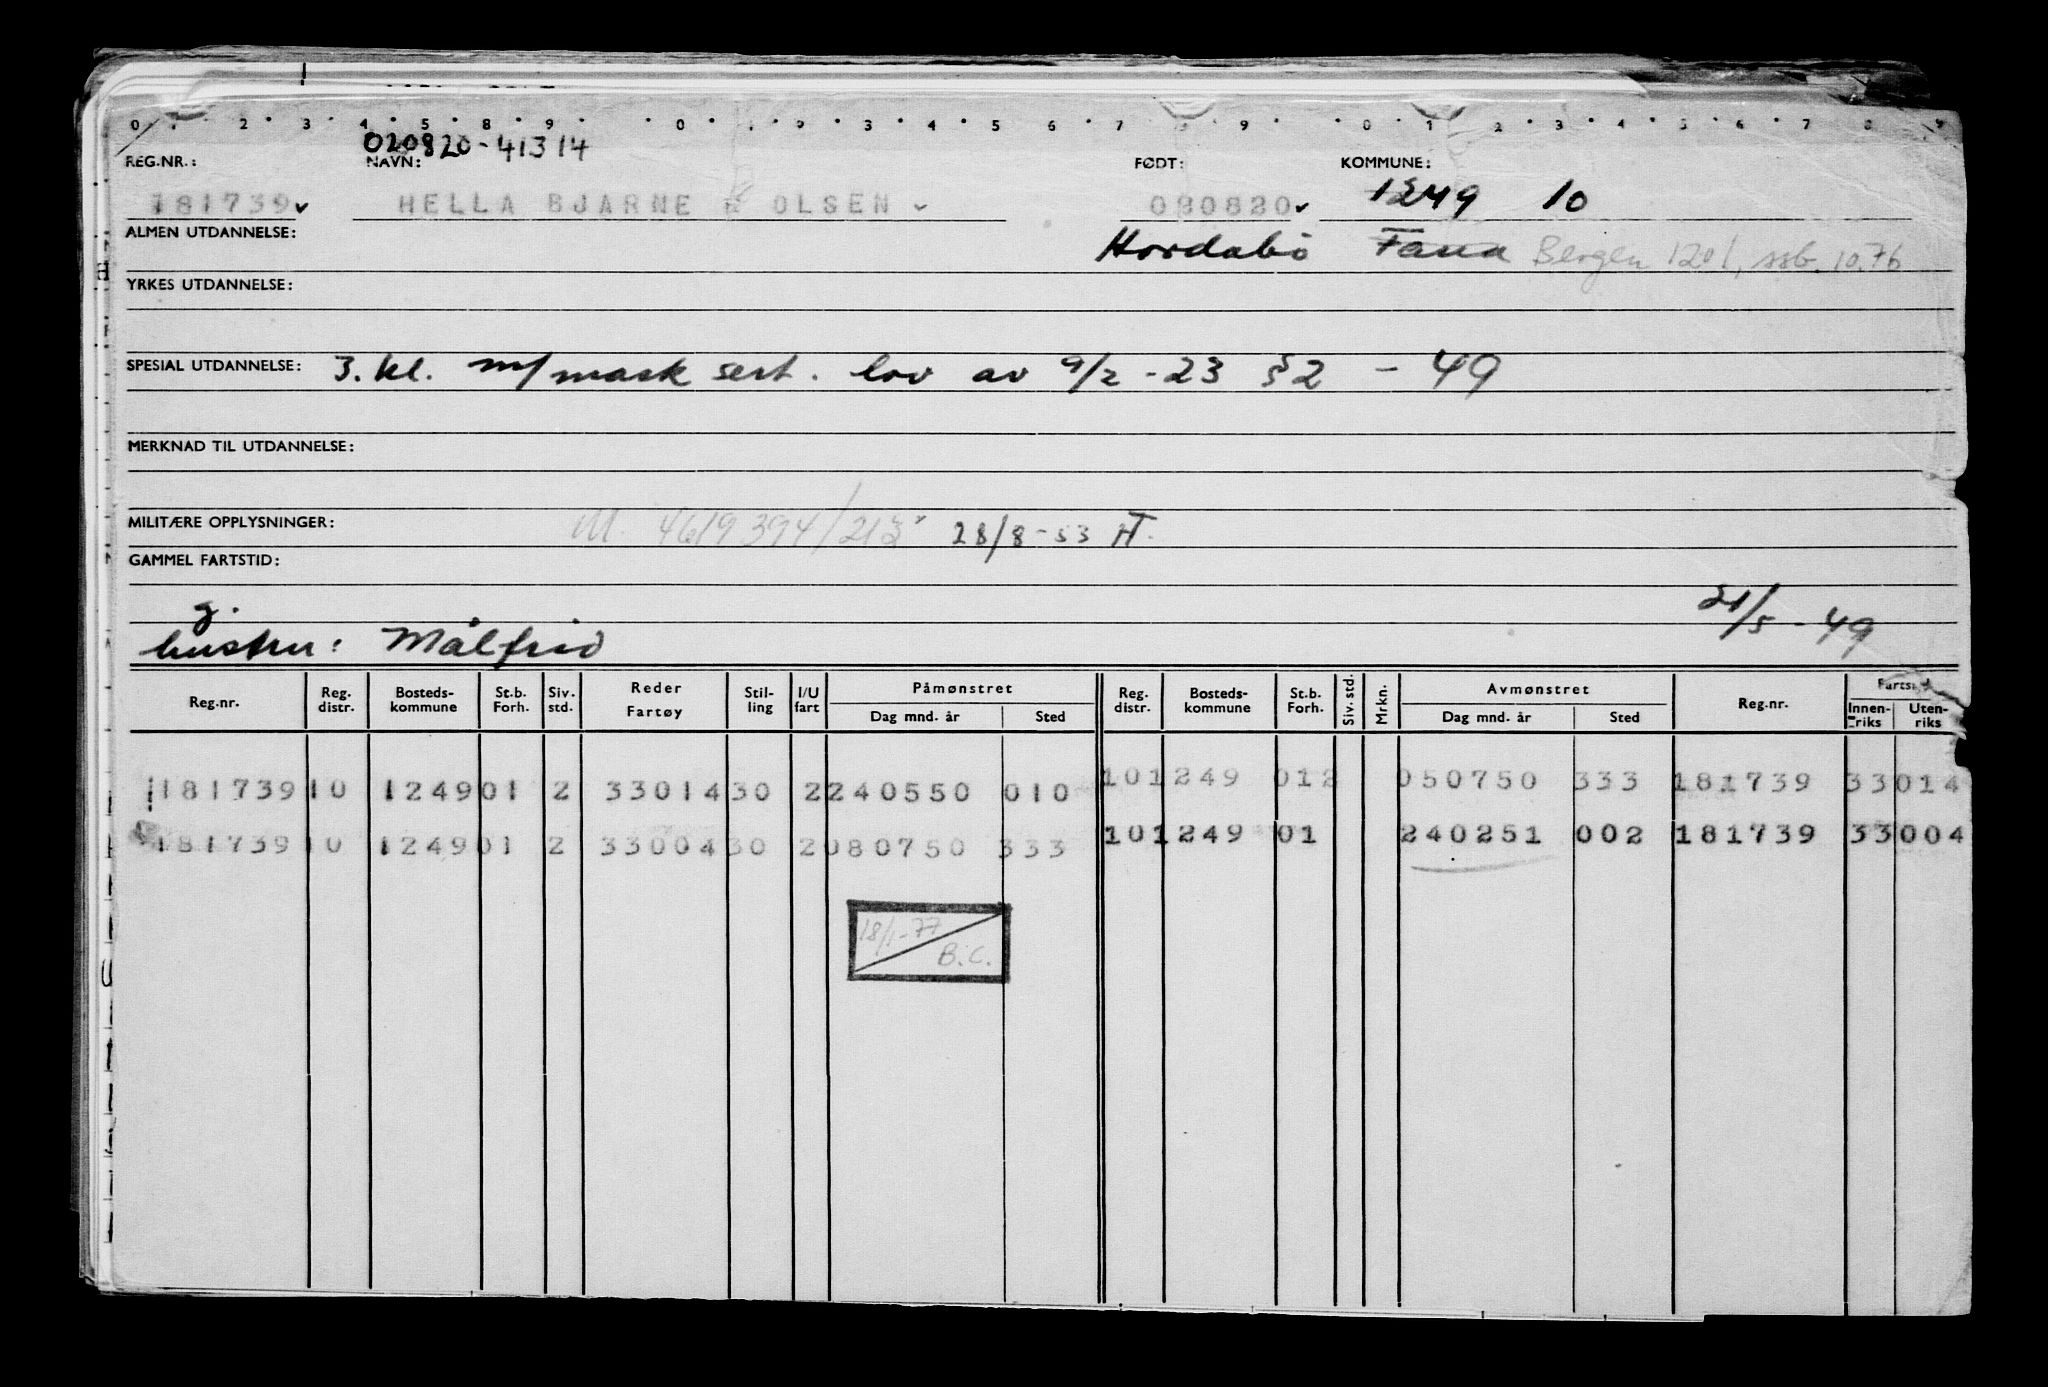 0 1 2 3 4 5 8 9 0 1 2 3 4 5 6 7 8 9 0 1 2 3 4 5 6 7 8 9
020820-41314
REG.NR.: NAVN: FØDT: KOMMUNE:
181739 HELLA BJARNE R OLSEN 020820 1249 10
ALMEN UTDANNELSE: Hordabö Fana Bergen 1201, ssb. 10.76
YRKES UTDANNELSE:
SPESIAL UTDANNELSE: 3. kl. m/mask sert. lov av 9/2 - 23 §2 - 49
MERKNAD TIL UTDANNELSE:
MILITÆRE OPPLYSNINGER: M. 4619394/213 28/8-53 H.
GAMMEL FARTSTID:
g. 21/5 - 49
hustru: Målfrid
Reg.nr. Reg. distr. Bosteds-kommune St.b. Forh. Siv. std. Reder Fartøy Stil-ling I/U fart Påmønstret Dag mnd. år Sted Reg. distr. Bosteds-kommune St.b. Forh. Siv. std. Mrkn. Avmønstret Dag mnd. år Sted Reg.nr. Fartstid Innen-riks Uten-riks
181739 10 1249 01 2 33014 30 2 240550 010 10 1249 012 050750 333 181739 33014
181739 10 1249 01 2 33004 30 2 080750 333 10 1249 01 240251 002 181739 33004
18/1-77
B.C.